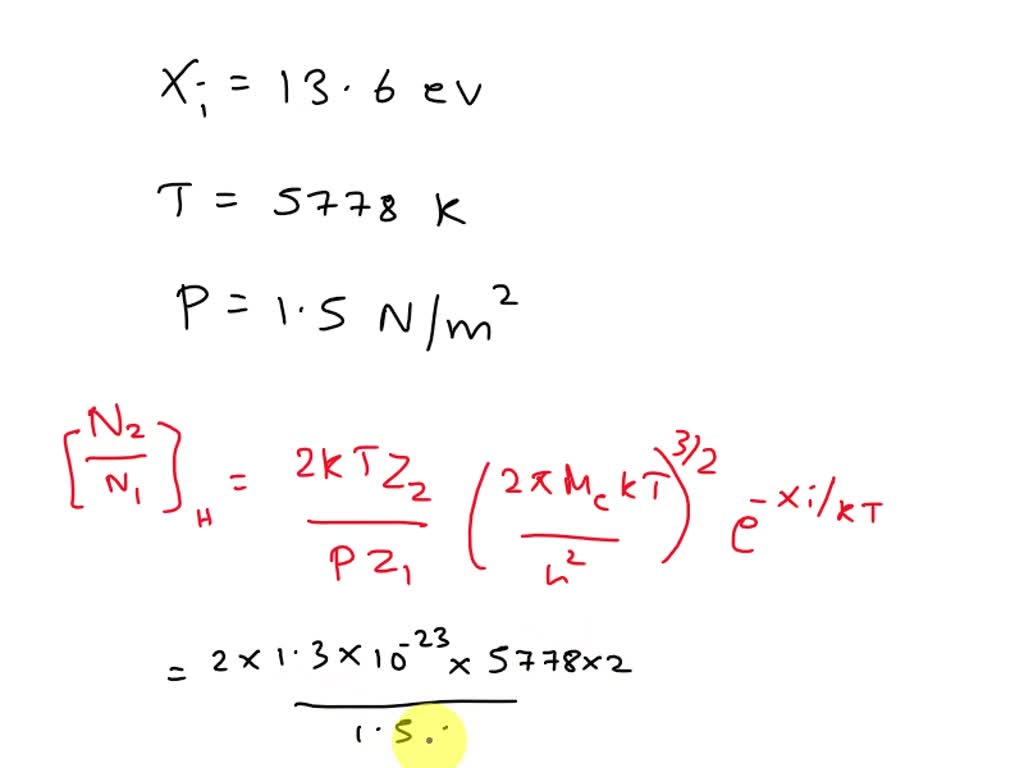 Xi = 13.6 ev
T = 5778 K
P = 1.5 N/m²
[N₂/N₁]H = 2KTZ₂/PZ₁ (2πMekT/h²)^3/2 e^-xi/KT
= 2×1.3×10^-23×5778×2/1.5.